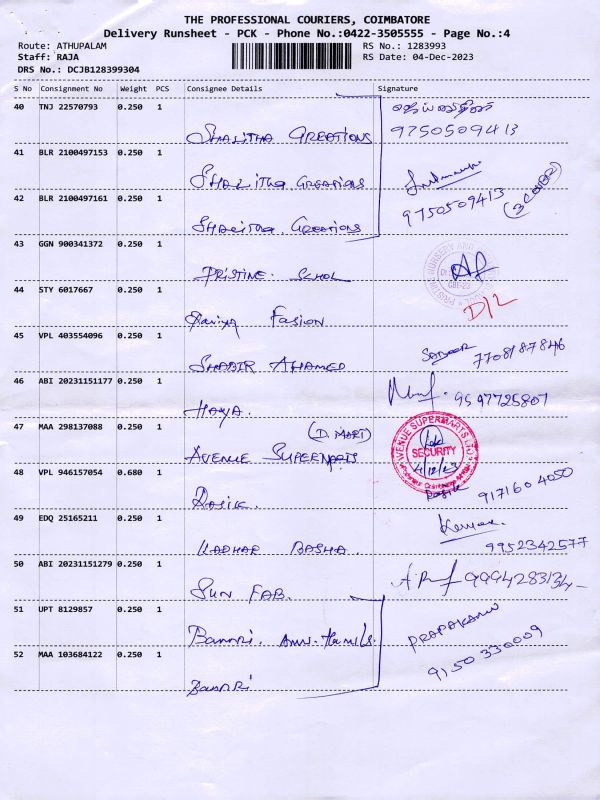 THE PROFESSIONAL COURIERS, COIMBATORE
Delivery Runsheet - PCK - Phone No.:0422-3505555 - Page No.:4
Route: ATHUPALAM RS No.: 1283993
Staff: RAJA RS Date: 04-Dec-2023
DRS No.: DCJB128399304
S No Consignment No Weight PCS Consignee Details Signature
40 TNJ 22570793 0.250 1
SHALITHA CREATIONS 9750509413
41 BLR 2100497153 0.250 1
SHALITHA CREATIONS
42 BLR 2100497161 0.250 1 9750509413 (3 COVER)
SHALITHA. CREATIONS
43 GGN 900341372 0.250 1
PRISTINE. SCHOL
44 STY 6017667 0.250 1 D/L
FASION
45 VPL 403554096 0.250 1
SHABIR AHAMED 7708187846
46 ABI 20231151177 0.250 1
HAYA. 9597725807
47 MAA 298137088 0.250 1 (D.MART)
AVENUE SUPERMARTS AVENUE SUPERMARTS LTD SECURITY 4/12/23
48 VPL 946157054 0.680 1
RASIK. Rasik 9171604050
49 EDQ 25165211 0.250 1 Kumar
KADHAR BASHA. 9952342577
50 ABI 20231151279 0.250 1
SUN FAB. 9994283134
51 UPT 8129857 0.250 1
BANARI. PRAPAKARAN
52 MAA 103684122 0.250 1 9150330009
BANARI